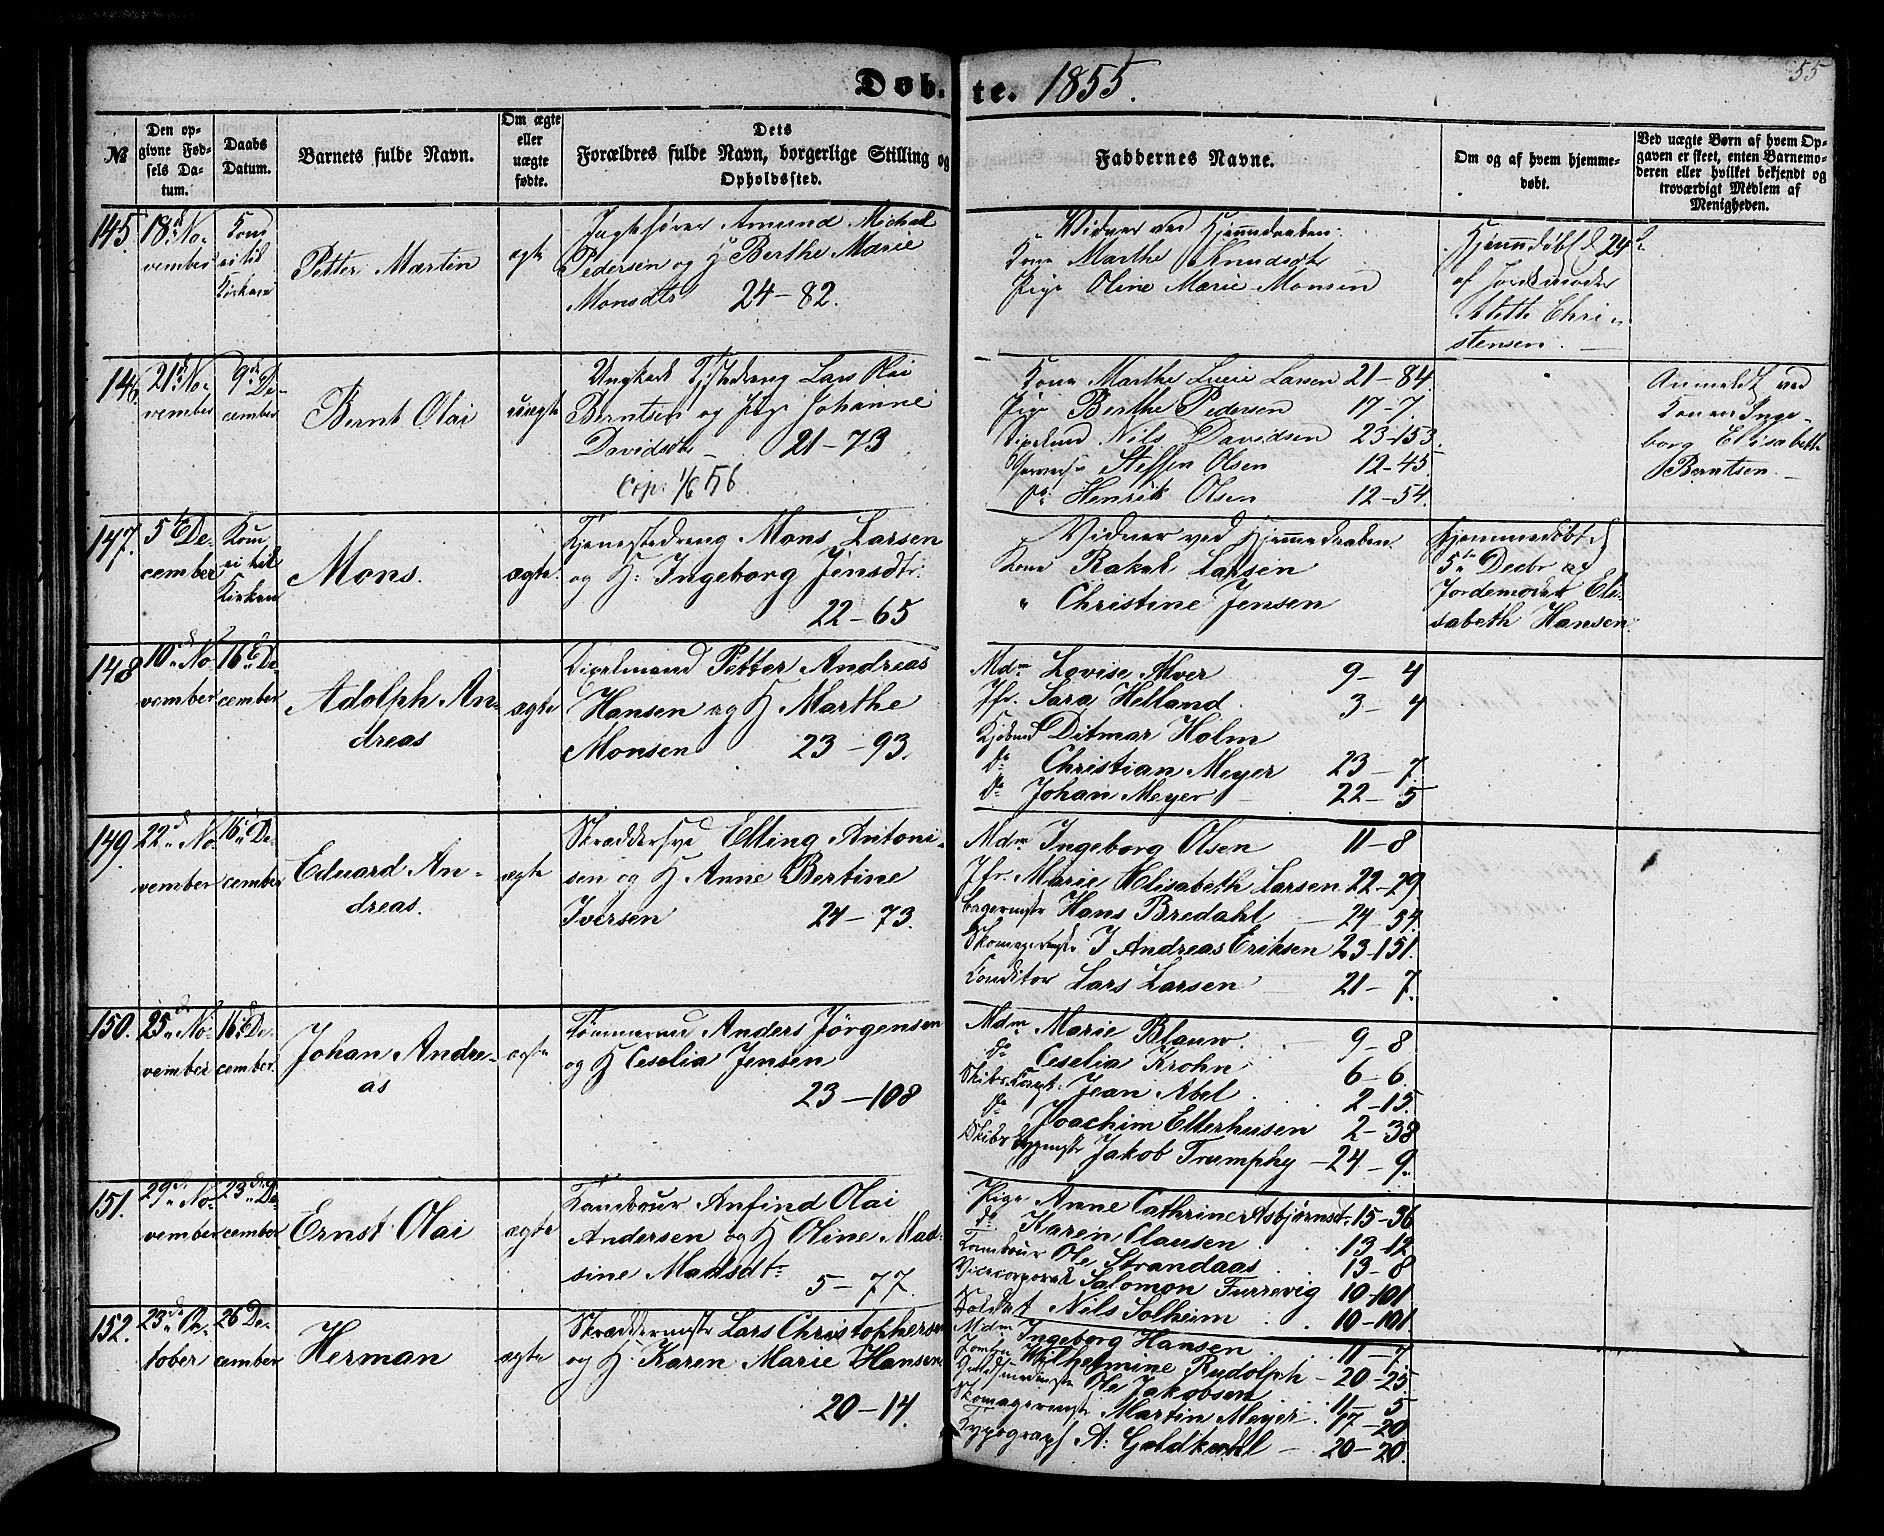 Døb. te. 1855.
55
№
Den opgivne Fødsels Datum.
Daabs Datum.
Barnets fulde Navn.
Om ægte eller uægte fødte.
Dets Forældres fulde Navn, borgerlige Stilling og Opholdssted.
Faddernes Navne.
Om og af hvem hjemmedøbt.
Ved uægte Børn af hvem Opgaven er skeet, enten Barnemoderen eller hvilket bekjendt og troværdigt Medlem af Menigheden.
145. 18de November
Kom ei til Kirken
Petter Martin
ægte
Jagtfører Amund Michal
Pedersen og H Berthe Marie
Monsdtr 24-82.
Vidner ved Hjemmedaaben:
Kone Marthe Knudsdtr
Pige Oline Marie Monsen
Hjemmdøbt d 24de
af Jordemoder
Mette Chri-
stensen.
146. 21de November
9de December
Bernt Olai
uægte
Ungkarl Tjstedreng Lars Olai
Berntsen og Pige Johanne
Davidsdtr 21-73
Cop: 1/6 56
Kone Marthe Lucie Larsen 21-84.
Pige Berthe Pedersen 17-7.
Nils Davidsen 23-153.
Steffen Olsen 12-45.
Do Henrik Olsen 12-54.
Anmeldt ved
Konen Inge-
borg Elisabeth
Berntsen
147. 5te December
Kom ei til Kirken
Mons.
ægte.
Tjenestedreng Mons Larsen
og H: Ingeborg Jensdtr.
22-65
Vidner ved Hjemmedaaben.
Kone Rakel Larsen
" Christine Jensen
Hjemmedøbt d
5te Decbr af
Jordemoder Eli-
sabeth Hansen.
148 10de November
16de December
Adolph An-
dreas
ægte
Petter Andreas
Hansen og H Marthe
Monsen 23-93.
Mdm Lovise Alver 9-4
Jfr. Sara Helland. 3-4
Kjøbmd Ditmar Holm
Do Christian Meyer 23-7.
Do Johan Meyer 22-5
149. 22de November
16de December
Eduard An-
dreas.
ægte
Skræddersvd Elling Antoni-
sen og H. Anne Bertine
Iversen 24-73.
Mdm Ingeborg Olsen 11-8
Jfr. Marie Elisabeth Larsen 22-29.
Bagermstr Hans Bredahl 24-54.
Skomagermstr J Andreas Eriksen 23-151.
Konditor Lars Larsen 21-7.
150. 25de November
16de December.
Johan Andre-
as
ægte
Tømmermd Anders Jörgensen
og H Ceselia Jensen
23-108
Mdm Marie Blauw. 9-8
Do Ceselia Krohn 6-6.
Skibs Capt: Jean Abel 2-15.
Do Joachim Ellerhusen 2-38
Skibsbygmstr Jakob Trumphy 24-9.
151. 29de November
23de December
Ernst Olai
ægte
Tambour Anfind Olai
Andersen og H Oline Mad-
sine Madsdtr 5-77.
Pige Anne Cathrine Asbjørnsd. 15-36
do Karen Clausen 13-12
Tambour Ole Strandaas 13-8
Vicecorporal Salomon Furrevig 10-101
Soldat Nils Solheim 10-101
152. 23de October
26 December
Herman
ægte
Skræddermstr Lars Christophersen
og H. Karen Marie Hansen
20-14.
Mdm Ingeborg Hansen 11-7
Jomfru Wilhelmine Rudolph 20-25.
Ole Jakobsen 11-5
Skomagermstr Martin Meyer 17-20
Typograph A: Goldkuhl 20-20.